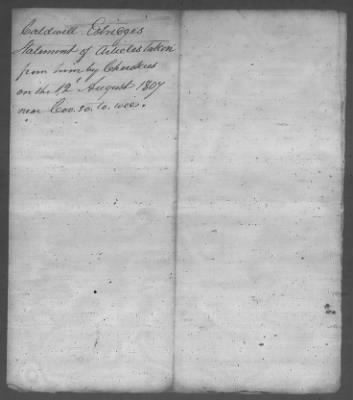 Caldwell Estridges
Statement of Articles taken
from him by Cherokees
on the 12th August 1807
near Coo. sa. to. wee.